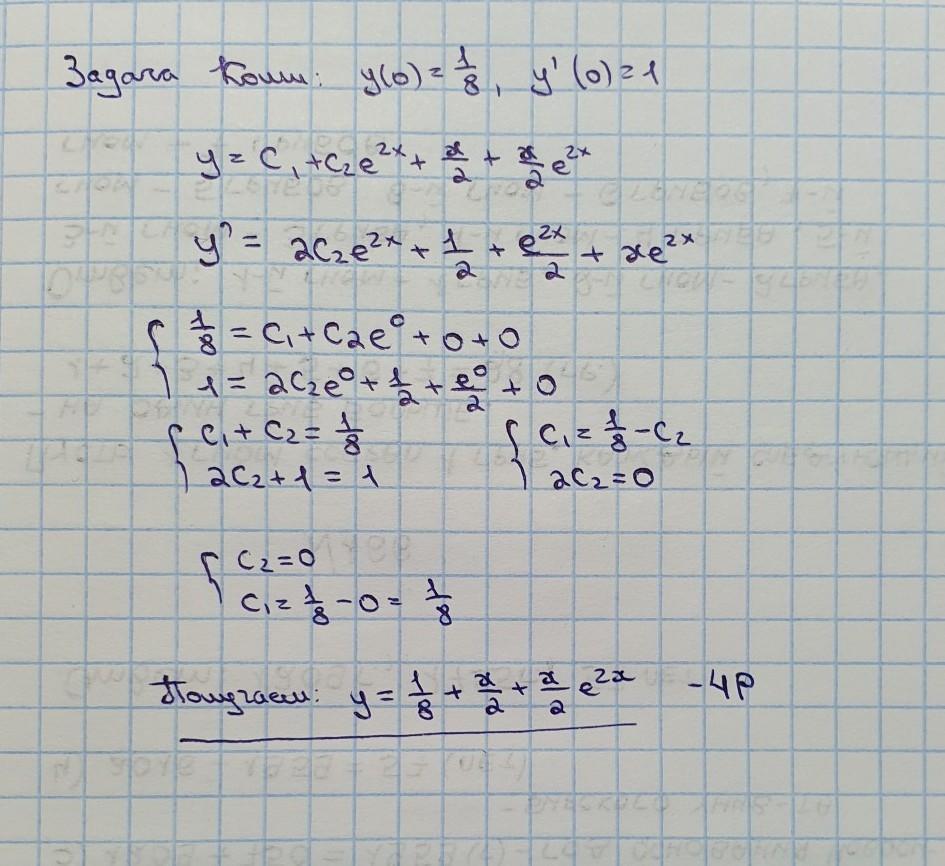 Задача Коши: y(0) = 1/8, y'(0) = 1
y = C₁ + C₂e^{2x} + x/2 + x/2 e^{2x}
y' = 2C₂e^{2x} + 1/2 + e^{2x}/2 + xe^{2x}
{ 1/8 = C₁ + C₂e⁰ + 0 + 0
1 = 2C₂e⁰ + 1/2 + e⁰/2 + 0
{ C₁ + C₂ = 1/8 { C₁ = 1/8 - C₂
2C₂ + 1 = 1 2C₂ = 0
{ C₂ = 0
C₁ = 1/8 - 0 = 1/8
Получаем: y = 1/8 + x/2 + x/2 e^{2x} - ЧР